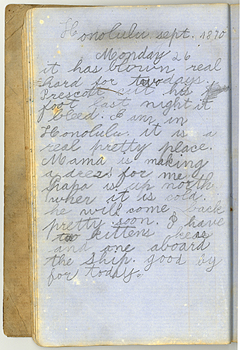 Honolulu sept. 1870
Monday 26
it has blown real
hard for two days.
Prescott cut his
foot last night it
bleed. I am in
Honolulu it is a
real pretty place.
Mama is making
a dress for me
Papa is up north
wher it is cold.
he will come back
pretty soon. I have
two kittens here
and one aboard
the ship. good by
for today.